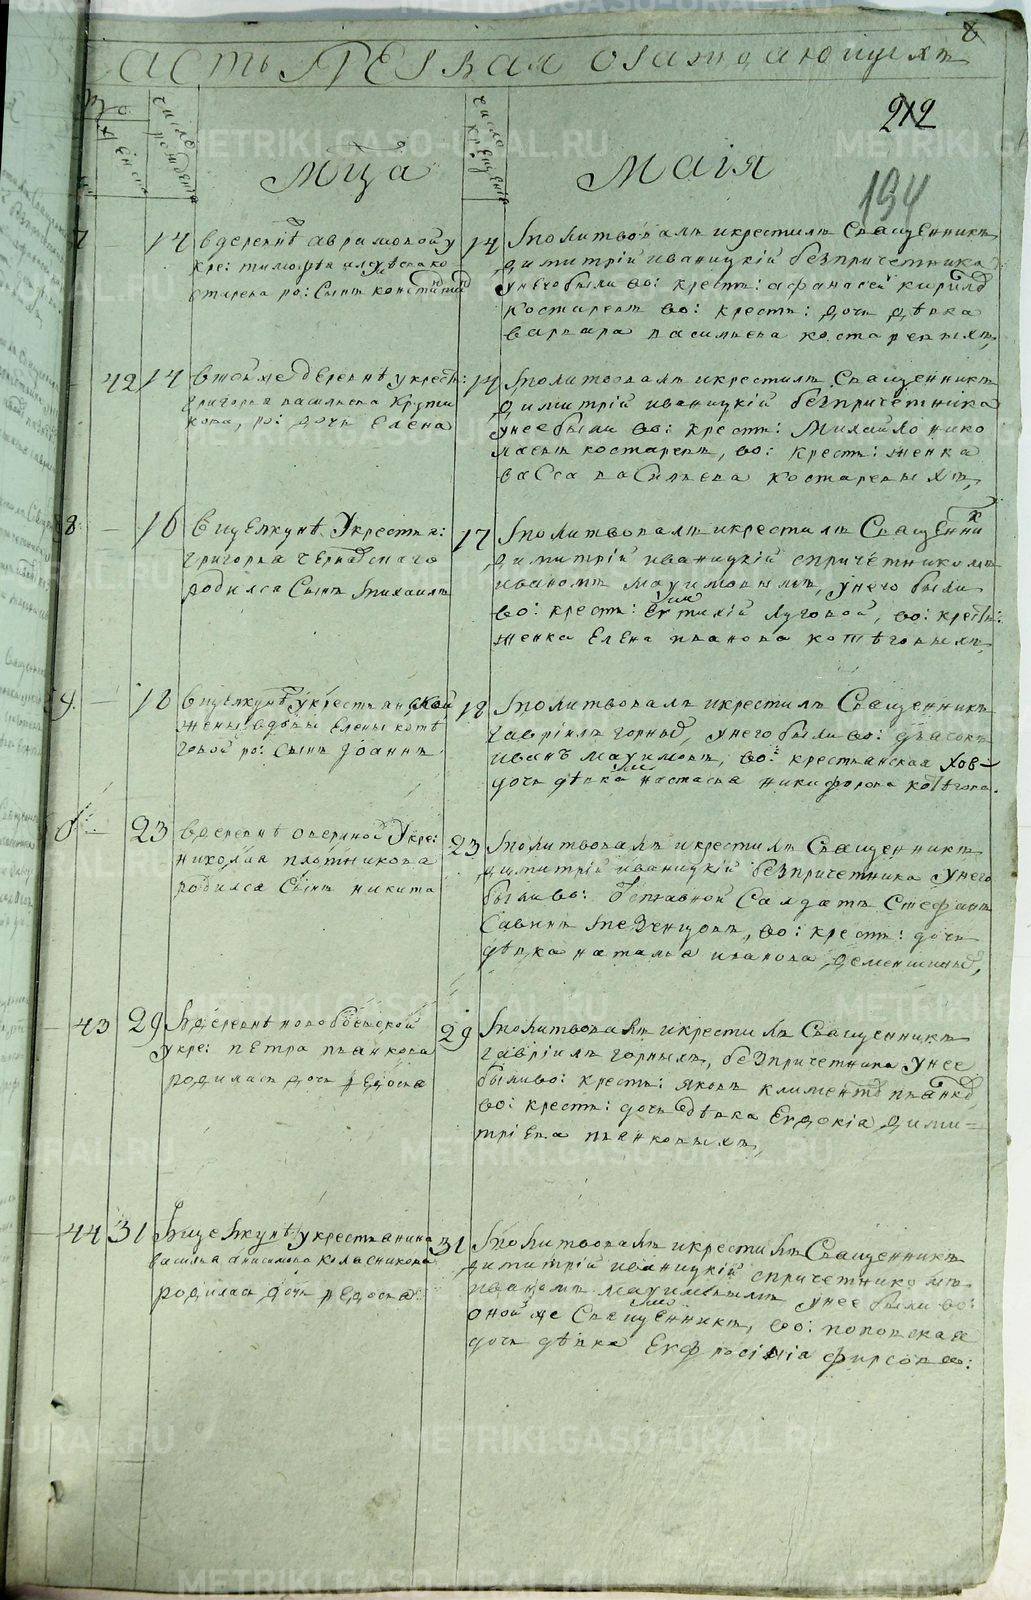 8
асть первая о раждающихся
212
194
число рождения
число крещения
Мца
Маія
7
14
в деревнѣ аврамовой у
кре: тимофѣя
старева ро: сынъ
14
молитвовалъ и крестилъ Священникъ
димитрій иваницкій без причетника
у него были во: крест: афанасей кирилъ
костаревъ во: крест: дочь дѣвка
варвара васильева костаревыхъ,
42
14
в той же деревнѣ у крест:
григорья васильева Крути
кова, ро: дочь Елена
14
молитвовалъ и крестилъ Священникъ
димитрій иваницкій без причетника
у нее были во: крест: Михайло нико
лаевъ костаревъ, во: крест: женка
васса васильева костаревыхъ,
8
—
16
в щелкунѣ у крестья:
григорья
родился сынъ михаилъ
17
молитвовалъ и крестилъ Священник
димитрій иваницкій с причетникомъ
иваномъ маѯимовымъ, у него были
во: крест: Евтихій луговой, во: крест:
женка Елена иванова котѣговыхъ
9
—
18
в щелкунѣ у крестьянской
жены вдовы Елены котѣ
говой ро: сынъ Іоаннъ
18
молитвовалъ и крестилъ Священникъ
гавріилъ горныхъ, у него были во: дьячокъ
иванъ маѯимовъ, во: крестьянская
дочь дѣвка настасья никифорова котѣгова.
—
23
в деревнѣ аверяной у кре:
николая плотникова
родился сынъ никита
23
молитвовалъ и крестилъ Священникъ
димитрій иваницкій без причетника у него
были во: отставной Салдатъ Стефанъ
Савинъ мезенцовъ, во: крест: дочь
дѣвка наталья иванова деменшиныхъ,
43
29
в деревнѣ новобоевской
у кре: петра пьянкова
родилась дочь ѳедосья
29
молитвовалъ и крестилъ Священникъ
гавріилъ горныхъ, без причетника у нее
были во: крест: яковъ климентьевъ пьянков
во: крест: дочь дѣвка Евдокіа дими=
тріева пьянковыхъ,
44
31
в щелкунѣ у крестьянина
василья анисимова Колясникова
родилась дочь ѳедосья:
31
молитвовалъ и крестилъ Священникъ
димитрій иваницкій с причетникомъ
иваномъ маѯимовымъ у нее были во:
оной же Священникъ, во: поповская
дочь дѣвка Евфросинія фирсова: